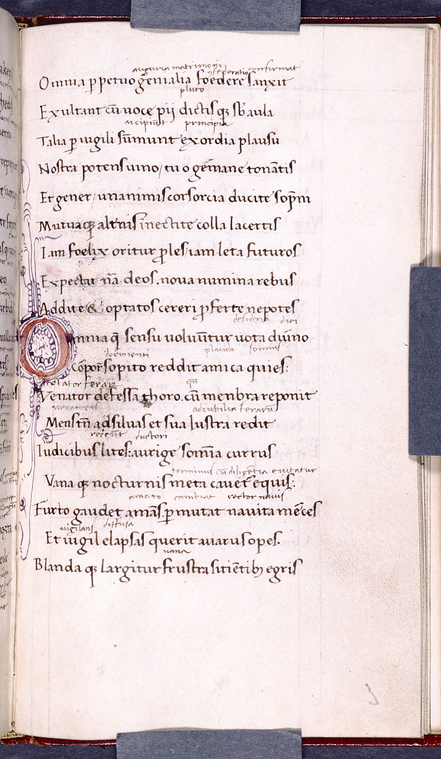 auguria matrimonii ... confirmat
Omnia ppetuo genialia foedere sanxit
pluto
Exultant cū uoce pii dictis qȝ sb aula
incipiunt principia
Talia puigili sūmunt exordia plausu
Nostra potens iuno, tu o ḡmane tonātis
Et gener, unanimi corsorcia ducite sopni
Mutuaqȝ altnis inectite colla lacertis
Iam foelix oritur ples iam leta futuros
Expectū nā deos. noua numina rebus
Addite & optatos cereri pferte nepotes
desideria diei
Omnia q̄ sensu voluūtur uota diūno
dormienti placida somnus
copor sopito reddit amica quies:
Venator defessā thoro. cū menbra reponit
cubilia ferarū
Mens tn̄ ad siluas et sua lustra redit
rectori
Iudicibus lites: aurige somīa currus
terminus cū diligētia euitatur
Vana qȝ nocturnis meta cauet equis:
amato cambiat rector nauis
Furto gaudet amās. pmutat nauita mēces
vigilans diffusa
Et uigil elapsas querit auarus opes.
uana
Blanda qȝ largitur frustra sitiētibȝ egris